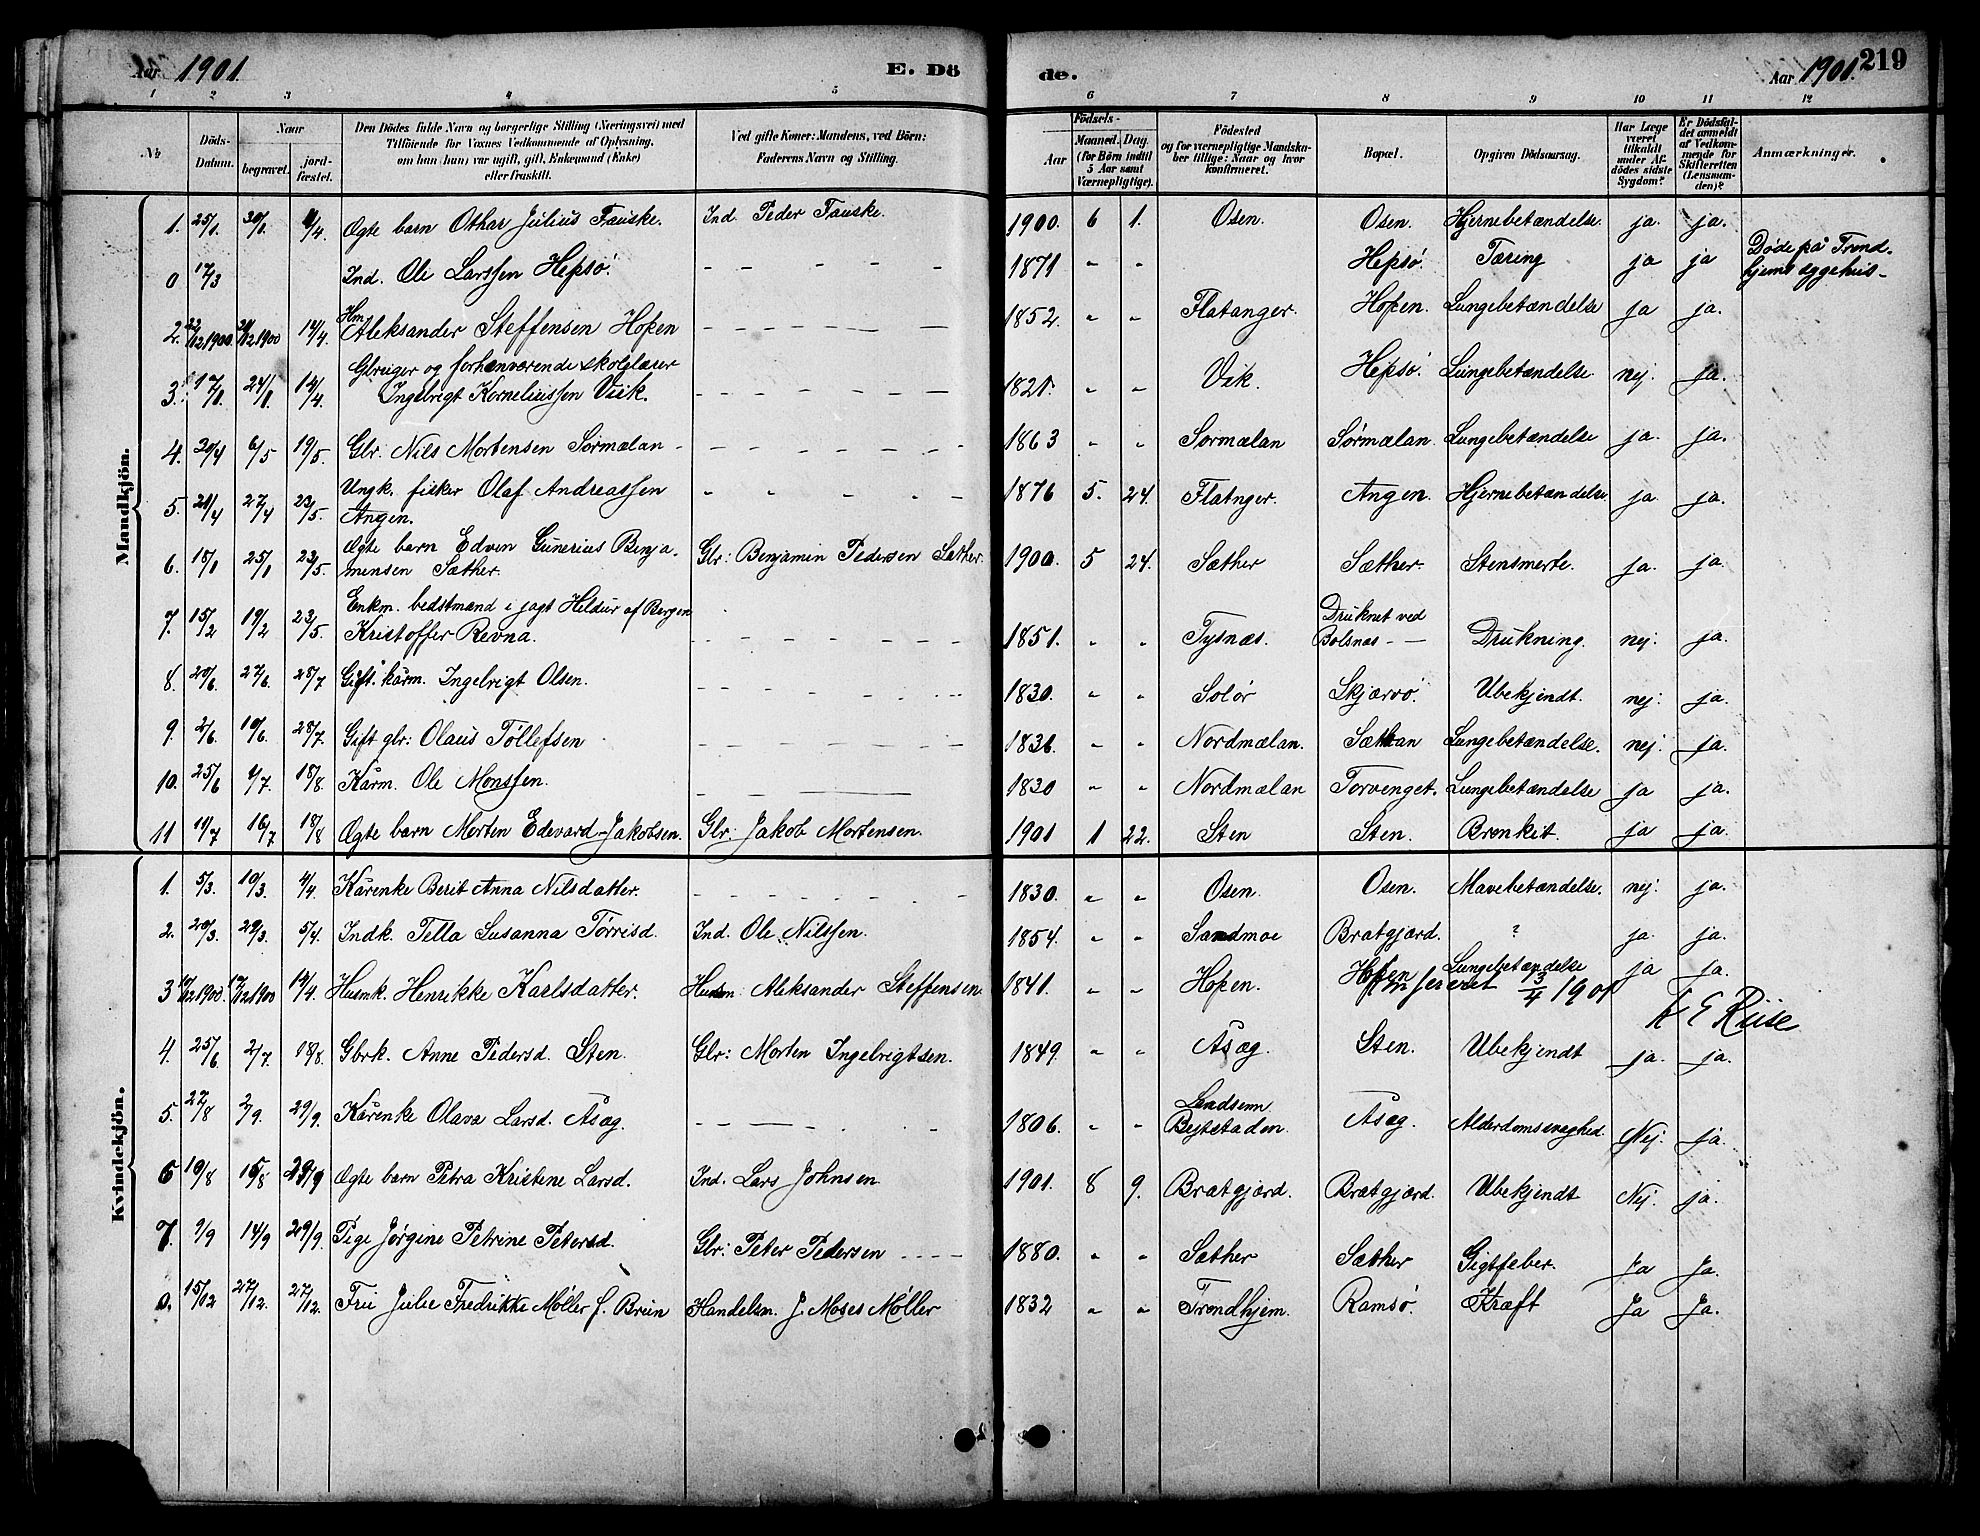 Aar 1901. E. Dö
de. Aar 1901. 219
1 2 3 4 5 6 7 8 9 10 11 12
№ Döds-Datum. Naar begravet. jord-fæstet. Den Dödes fulde Navn og borgerlige Stilling (Næringsvei) med Tilföiende for Voxnes Vedkommende af Oplysning, om han (hun) var ugift, gift, Enkemand (Enke) eller fraskilt. Ved gifte Koner: Mandens, ved Börn: Faderens Navn og Stilling. Födsels- Aar Maaned. Dag. (for Börn indtil 5 Aar samt Værnepligtige). Födested og for værnepligtige Mandskaber tillige: Naar og hvor konfirmeret. Bopæl. Opgiven Dödsaarsag. Har Læge været tilkaldt under Afdödes sidste Sygdom? Er Dödsfaldet anmeldt af Vedkommende for Skifteretten (Lensmanden)? Anmærkninger.
Mandkjön.
1. 25/1 30/1 4/4 Ægte barn Othar Julius Fauske. Ind. Peder Fauske. 1900. 6 1. Osen. Osen. Hjernebetændelse. ja. ja.
0 17/3 Ind. Ole Larssen Hepsø. — — — — 1871 " " Hepsø. Tæring ja ja Døde på Trond-
hjems sygehus -
2. 22/12 1900. 1900 14/4. Hm Aleksander Steffensen Hopen — — — — 1852. " " Flatanger. Hopen. Lungebetændelse ja ja.
3. 17/1. 24/1. 14/4. forhenværende skolelærer
Ingebrigt Korneliussen Viik. — — — — 1821. " " Vik. Hepsø. Lungebetændelse. nej. ja.
4. 20/4 6/5 19/5. Glr. Nils Mortensen Sørmælan — — — — 1863 " " Sørmælan Sørmælan. Lungebetændelse ja. ja.
5. 21/4 27/4 23/5. Ungk. fisker Olaf Andreassen
Angen. " " " " 1876 5. 24. Flatnger. Angen. Hjernebetændelse ja. ja.
6. 18/1 25/1 23/5. Ægte barn Edvin Gunerius Benja-
minsen Sæther. Glr: Benjamin Pedersen Sæther. 1900. 5 24. Sæther Sæther. Stensmerte. ja. ja.
7. 15/2 19/2 23/5. Enkm. bedstmand i jagt Hildur af Bergen
Kristoffer Revna. — — — — 1851. " " Tysnæs. Druknet ved
Bolsnæs — Drukning. nej. ja.
8. 20/6. 27/6. 28/7 Gift. kårm. Ingebrigt Olsen. — — — — 1830. " " Solør Skjærvø. Ubekjendt. nej. ja.
9. 2/6. 10/6. 28/7. Gift glr: Olaus Tøllefsen — — — — 1836. " " Nordmælan. Sætran Lungebetændelse. nej. ja.
10. 25/6 4/7. 18/8. Kårm. Ole Monssen. — — — 1830 " " Nordmælan Torvenget. Lungebetændelse ja ja.
11 11/7 16/7 18/8 Ægte barn Morten Edevard Jakobsen. Glr: Jakob Mortensen. 1901 1 22. Sten Sten. Bronkit. ja ja.
Kvindekjön.
1. 5/3. 10/3. 4/4. Kårenke Berit Anna Nilsdatter. — — — — 1830. " " Osen. Osen. Mavebetændelse. nej. ja.
2. 20/3. 29/3. 5/4. Indk. Tella Susanna Tørrisd. Ind. Ole Nilssen. 1854. " " Sandmoe Bratgjærd. ? ja. ja.
3 1900. 17/12 1900 14/4. Husmk. Henrikke Karlsdatter. Husm Aleksander Steffensen. 1841. " " Hopen. Hopen Lungebetændelse ja ja.
Konfereret 13/4 1901
K E Riise
4. 25/6 2/7. 18/8. Gbrk. Anne Pedersd. Sten. Glr: Morten Ingebrigtsen. 1849. " " Åsæg. Sten. Ubekjendt ja. ja.
5. 27/8 2/9. 29/9. Kårenke Olava Larsd. Åsæg. — — — — 1806. " " Landsem
Beitstaden. Åsæg. Alderdomssvaghed Nej. ja.
6 10/8 15/8 29/9 Ægte barn Petra Kristine Larsd. Ind. Lars Johnsen 1901. 8 9. Bratgjærd. Bratgjærd. Ubekjendt Nej. ja.
7. 9/9 14/9 29/9. Pige Jørgine Petrine Petersd. Glr: Peter Pedersen 1880. " " Sæther Sæther Gigtfeber. Ja Ja.
0. 15/12 27/12. 27/12. Fru Julie Fredrikke Møller f. Brün Handelsm. J. Moses Møller 1832 " " Trondhjem. Ramsø. Kræft Ja Ja.